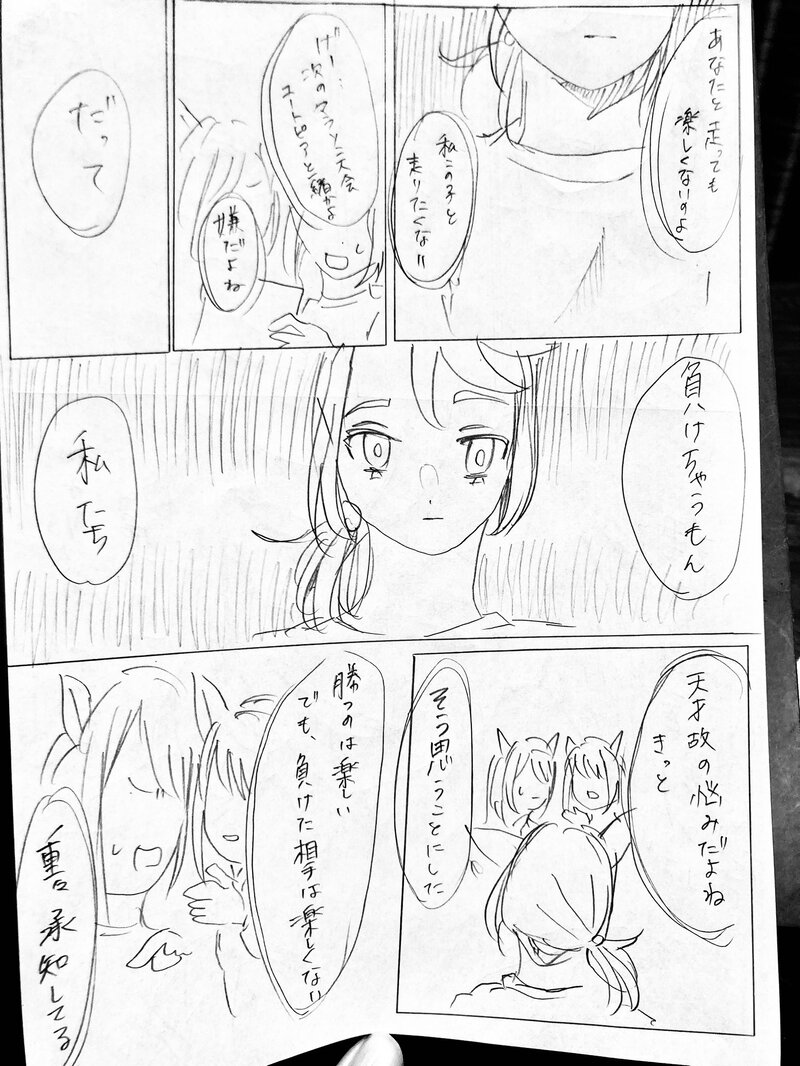 あなたと走っても
楽しくないのよ
私この子と
走りたくない!!
げー…
次のマラソン大会
ユートピアと一緒かよ
嫌だよね
だって
負けちゃうもん
私たち
天才故の悩みだよね
きっと
そう思うことにした
勝つのは楽しい
でも、負けた相手は楽しくない
重々承知してる